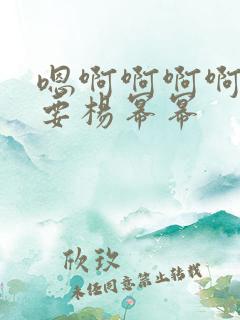 嗯啊啊啊啊
要杨幂幂
欣玫
未经同意禁止转载